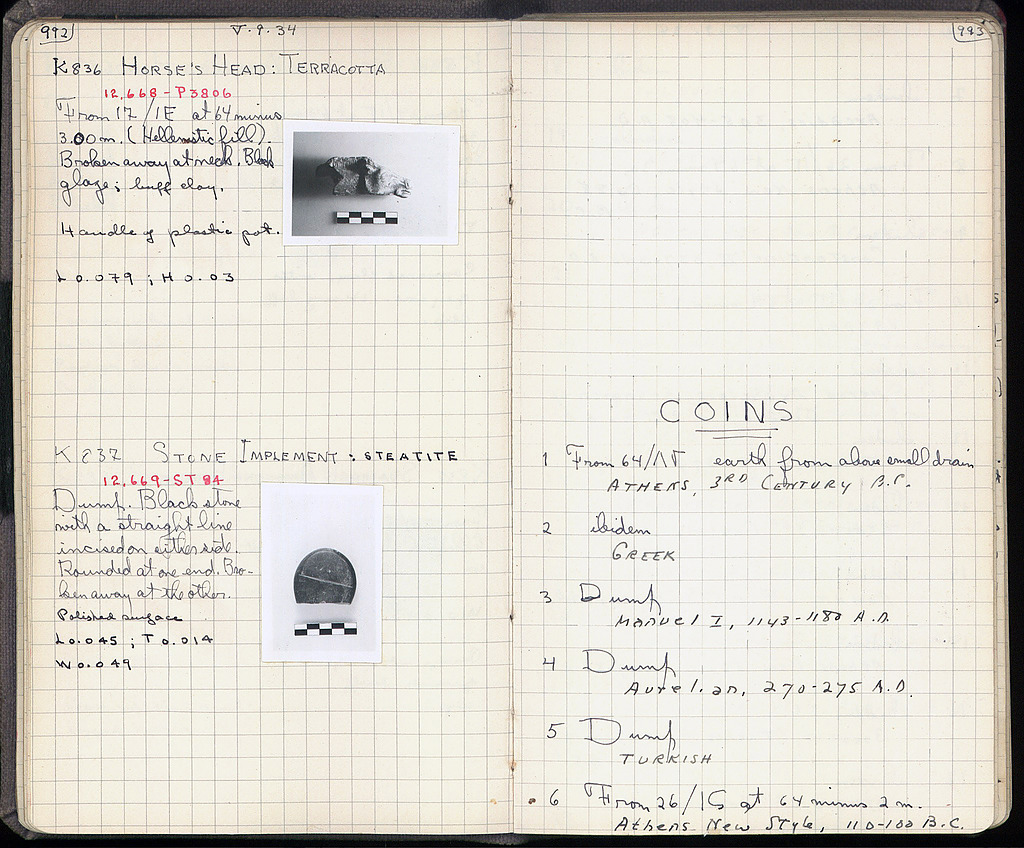 992
V·9·34
K836 HORSE'S HEAD: TERRACOTTA
12,668-P3806
From 17/IE at 64 minus
3.00m. (Hellenistic fill).
Broken away at neck. Black
glaze; buff clay.
Handle of plastic pot.
L 0.079; H 0.03
K 837 STONE IMPLEMENT: STEATITE
12,669-ST 84
Dump. Black stone
with a straight line
incised on either side.
Rounded at one end. Bro-
ken away at the other.
Polished surface
L 0.045; T 0.014
W 0.049
993
COINS
1 From 64/ΛΓ earth from above small drain
ATHENS, 3RD CENTURY B.C.
2 ibidem
GREEK
3 Dump
Manuel I, 1143-1180 A.D.
4 Dump
Aurelian, 270-275 A.D.
5 Dump
TURKISH
6 From 26/IS at 64 minus 2 m.
Athens New Style, 110-100 B.C.